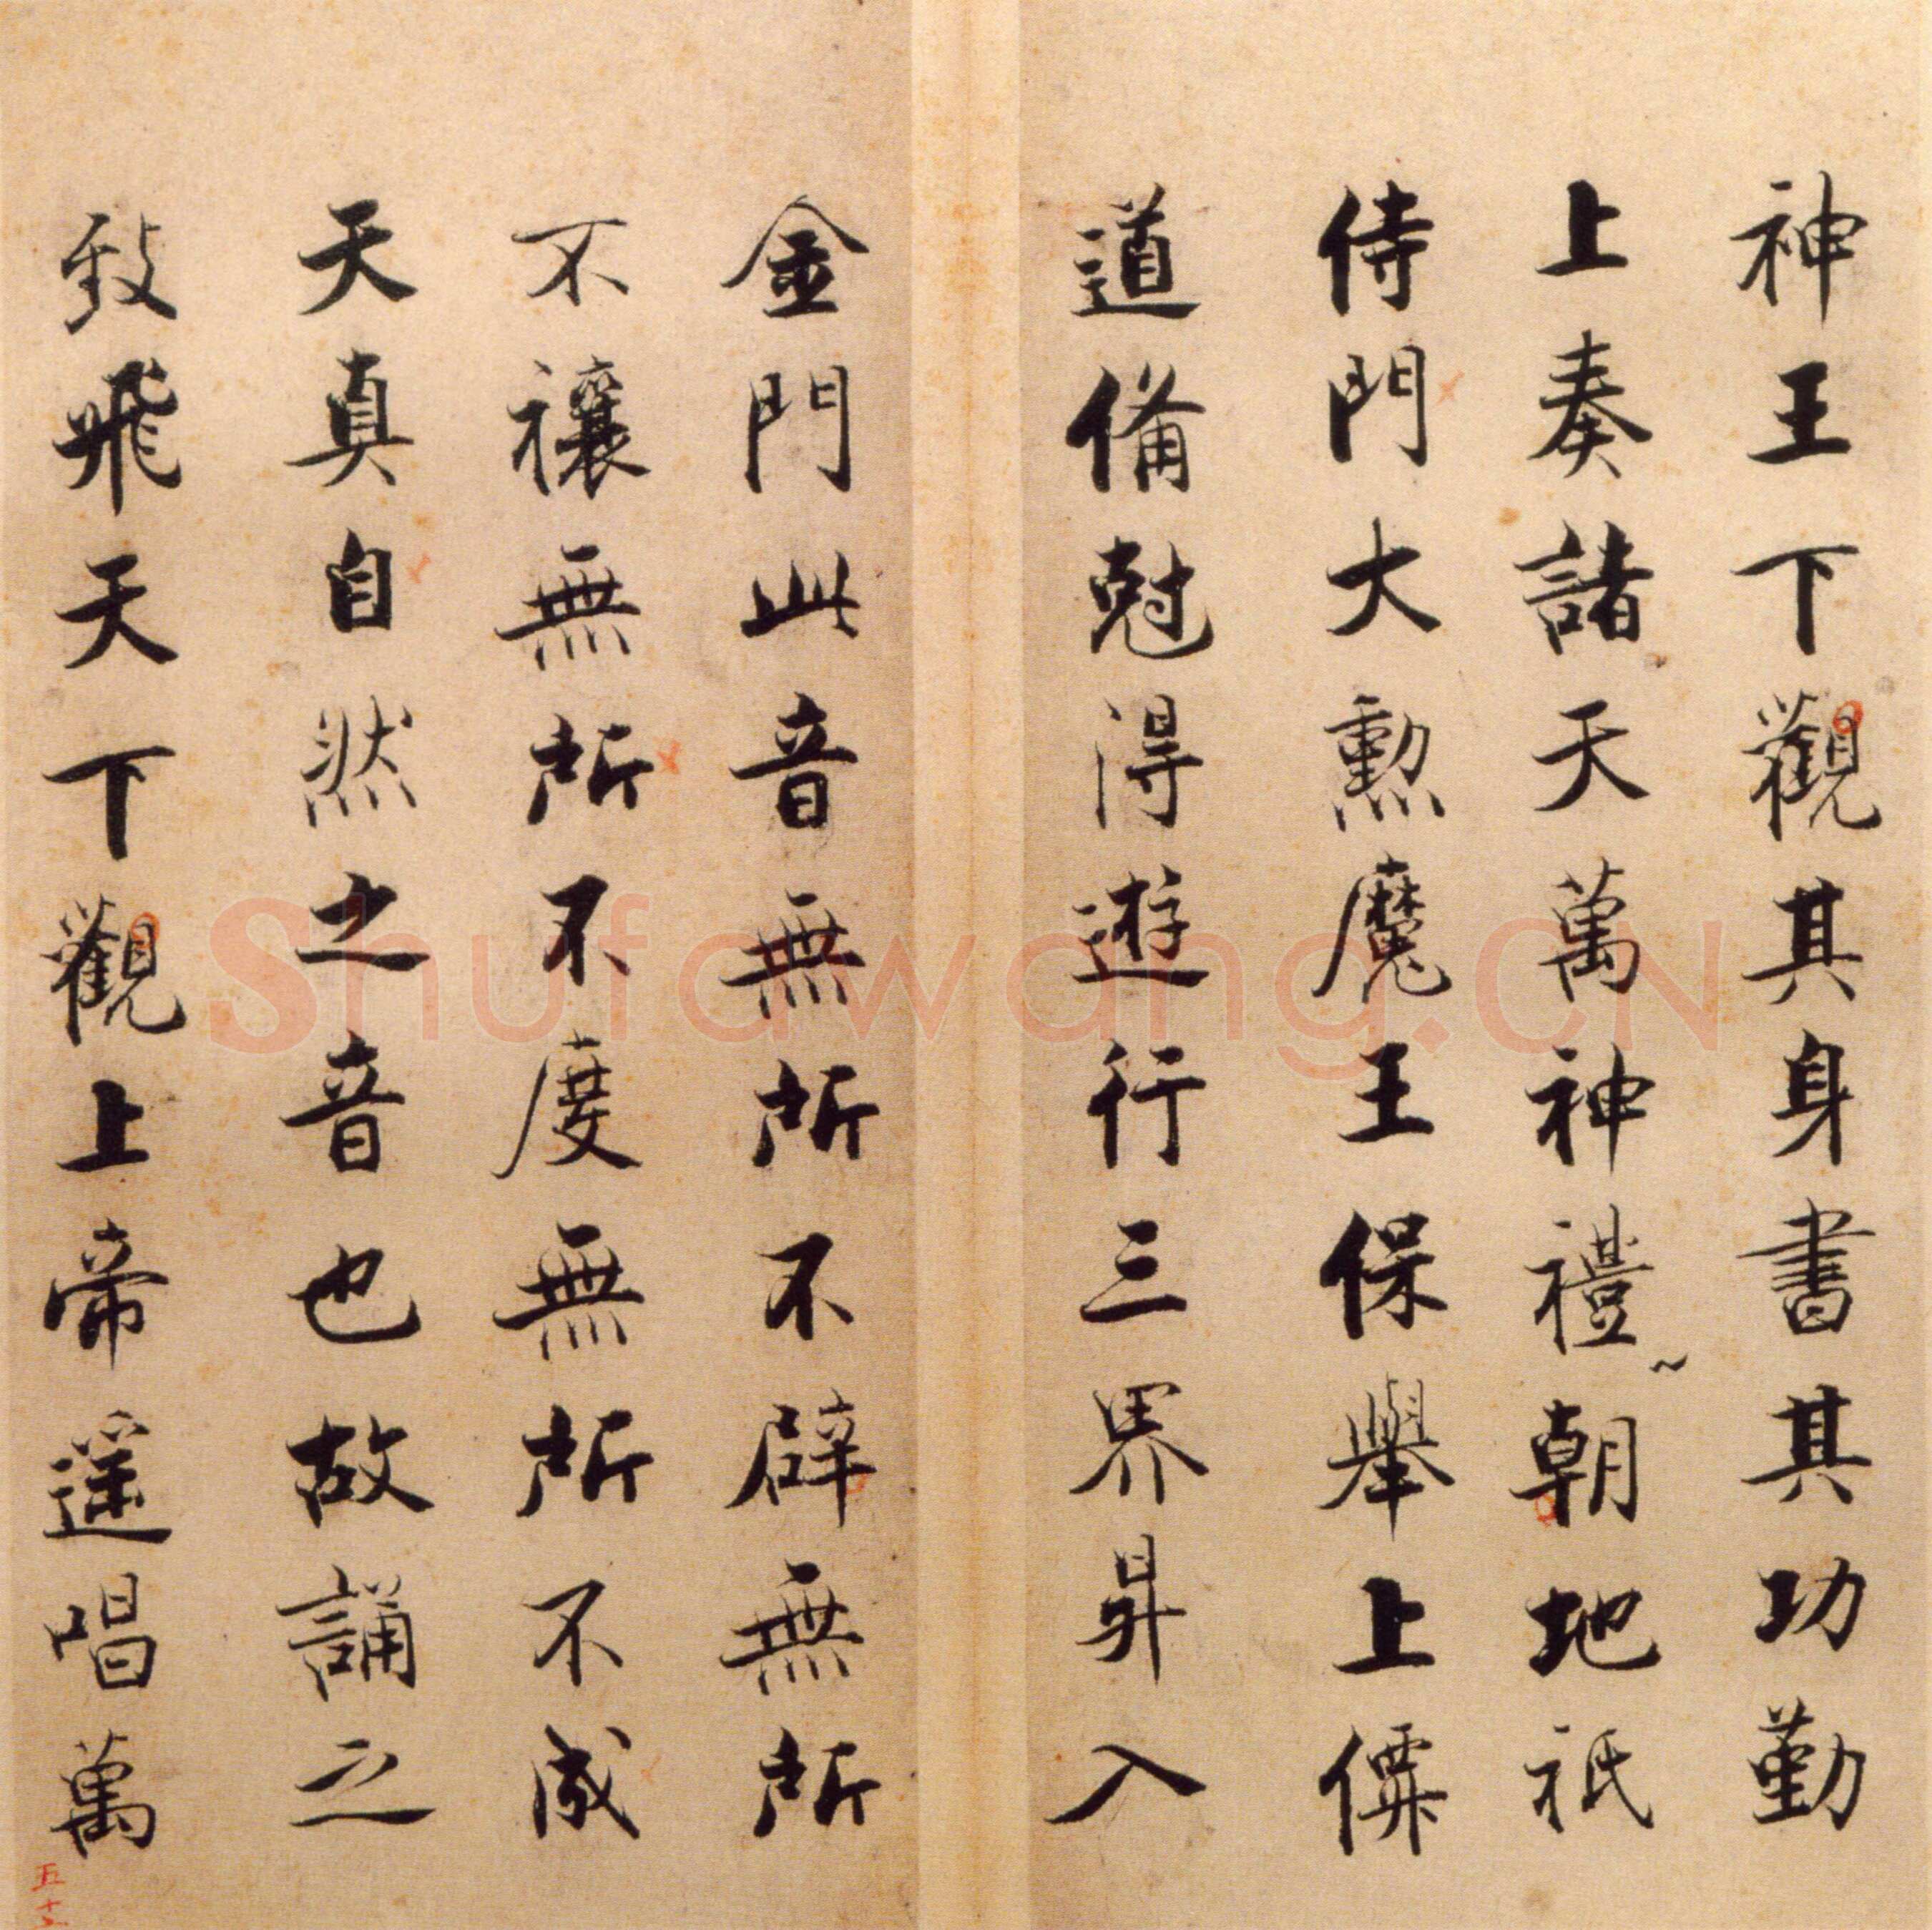 神王下觀其身書其功勤
上奏諸天萬神禮朝地祇
侍門大勲魔王保舉上僊
道備剋得遊行三界昇入
金門此音無所不辟無所
不禳無所不度無所不成
天真自然之音也故誦之
致飛天下觀上帝遥唱萬
五十
Shufawang.CN